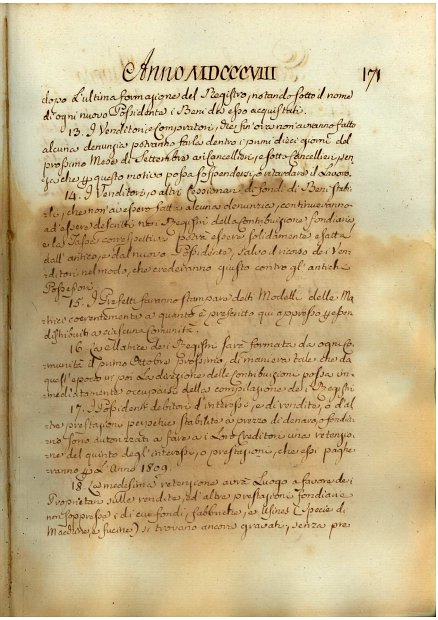 Anno MDCCCVIII 171
dopo l'ultima formazione del Registro, notando sotto il nome
di ogni nuovo Possidente i Beni da esso acquistati.
13. I Venditori, e Compratori, che fin'ora non avranno fatto
alcuna denunzia potranno farla dentro i primi dieci giorni del
prossimo Mese di Settembre ai Cancellieri, e sotto Cancellieri, sen
za che per questo motivo possa sospendersi, o ritardare il Lavoro.
14. I Venditori, o altri Cessionarj di fondi di Beni stabi
li, che non avessero fatta alcuna denunzia, continueranno
ad essere descritti nei Registri della Contribuzione fondiaria,
e la Tassa corrispettiva potrà essere solidamente esatta
dall'antico, e dal nuovo Possidente, salvo il ricorso dei Ven
ditori nel modo, che crederanno giusto contro gl'antichi
Possessori.
15. I Prefetti faranno stampare detti Modelli delle Ma
trici coerentemente a quanto è prescritto qui appresso, per
distribuirli a ciascuna Comunità.
16. La Matrice dei Registri sarà formata da ogni Co
munità il primo Ottobre prossimo, di maniera tale che da
quell'epoca in poi La direzione delle Contribuzioni possa im
mediatamente occuparsi della compilazione dei Registri
17. I Possidenti debitori d'interessi, e di rendite, o d'al
tre prestazioni perpetue stabilite a prezzo di denaro, o fondia
rie sono autorizzati a fare a i Loro Creditori una retenzio
ne del quinto degl'interessi, o prestazioni, che essi paghe
ranno per L'Anno 1809.
18. La medesima retenzione avrà Luogo a favore dei
Proprietarj sulle rendite, ed altre prestazioni fondiarie
non soppresse, i di cui fondi, fabbriche, e Usines (Specie di
Macchine, e fucine) si trovano ancora gravati, senza pre